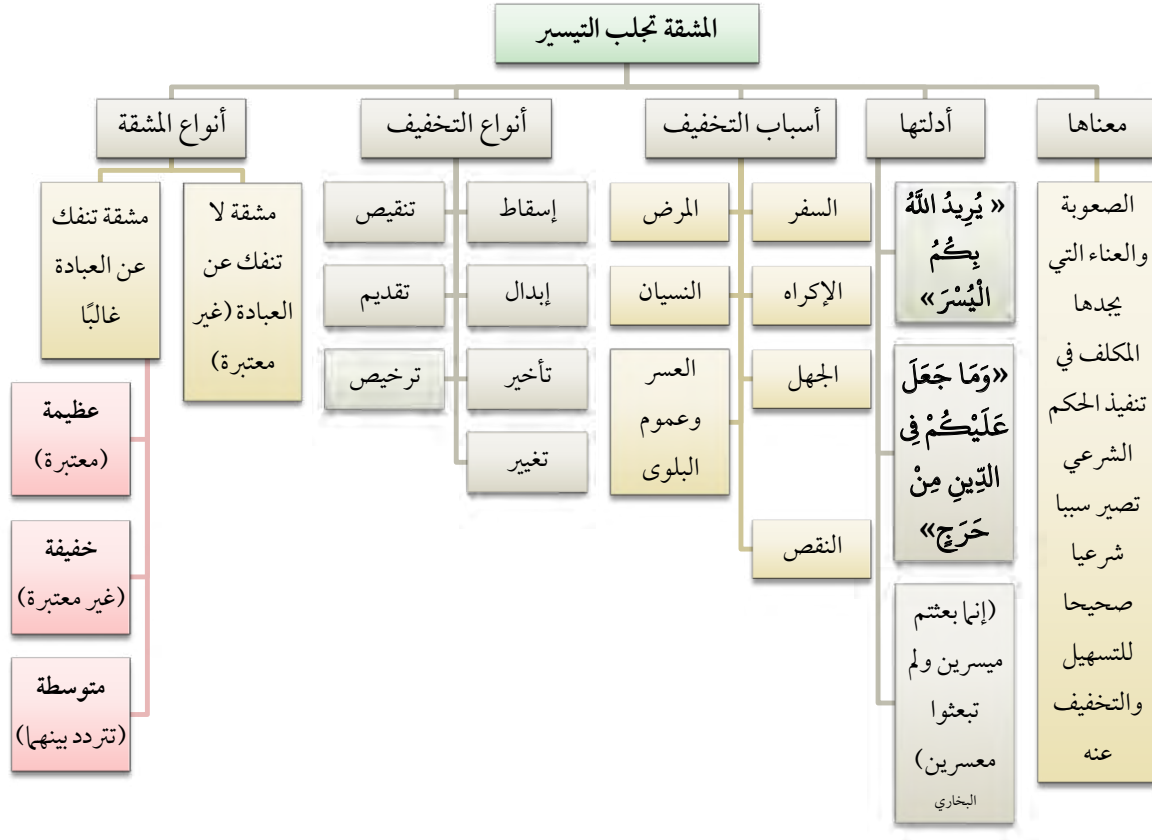 المشقة تجلب التيسير
معناها
الصعوبة
والعناء التي
يجدها
المكلف في
تنفيذ الحكم
الشرعي
تصير سببا
شرعيا
صحيحا
للتسهيل
والتخفيف
عنه
أدلتها
« يُرِيدُ اللَّهُ
بِكُمُ
الْيُسْرَ»
«وَمَا جَعَلَ
عَلَيْكُمْ فِى
الدِّينِ مِنْ
حَرَجٍ»
(إنما بعثتم
ميسرين ولم
تبعثوا
معسرين)
البخاري
أسباب التخفيف
السفر
المرض
الإكراه
النسيان
الجهل
العسر
وعموم
البلوى
النقص
أنواع التخفيف
إسقاط
تنقيص
إبدال
تقديم
تأخير
ترخيص
تغيير
أنواع المشقة
مشقة لا
تنفك عن
العبادة (غير
معتبرة)
مشقة تنفك
عن العبادة
غالبًا
عظيمة
(معتبرة)
خفيفة
(غير معتبرة)
متوسطة
(تتردد بينهما)